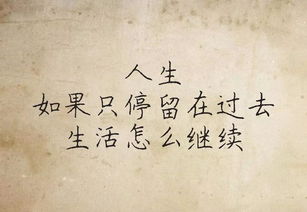 人生
如果只停留在过去
生活怎么继续